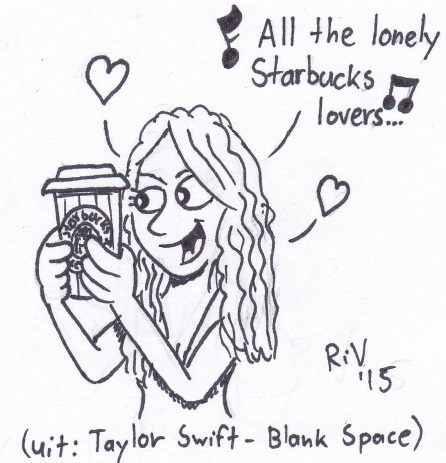 All the lonely
Starbucks
lovers...
Starbucks
RiV
'15
(uit: Taylor Swift - Blank Space)